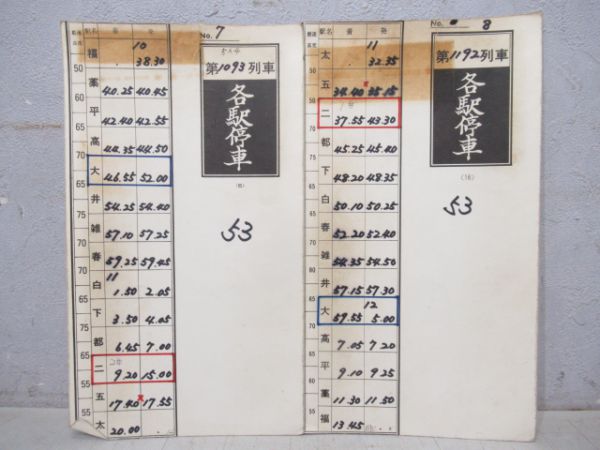 駅名 着 発 No. 7
福 10 38.30
50
薬 40.25 40.45
平 42.40 42.55
高 44.35 44.50
70
大 46.55 52.00
65
井 54.25 54.40
75
雑 57.10 57.25
70
春 59.25 59.45
11
白 1.50 2.05
下 3.50 4.05
都 6.45 7.00
65
二 9.20 15.00
55
五 17.40 17.55
太 20.00
第1093列車
各駅停車
53
駅名 着 発 No. 8
太 11 32.35
五 34.40 35.15
50
二 37.55 43.30
都 45.25 45.40
70
下 48.20 48.35
白 50.10 50.25
春 52.20 52.40
雑 54.35 54.50
井 57.15 57.30
大 12
59.55 5.00
高 7.05 7.20
70
平 9.10 9.25
薬 11.30 11.50
福 13.45
55
第1192列車
各駅停車
(16)
53